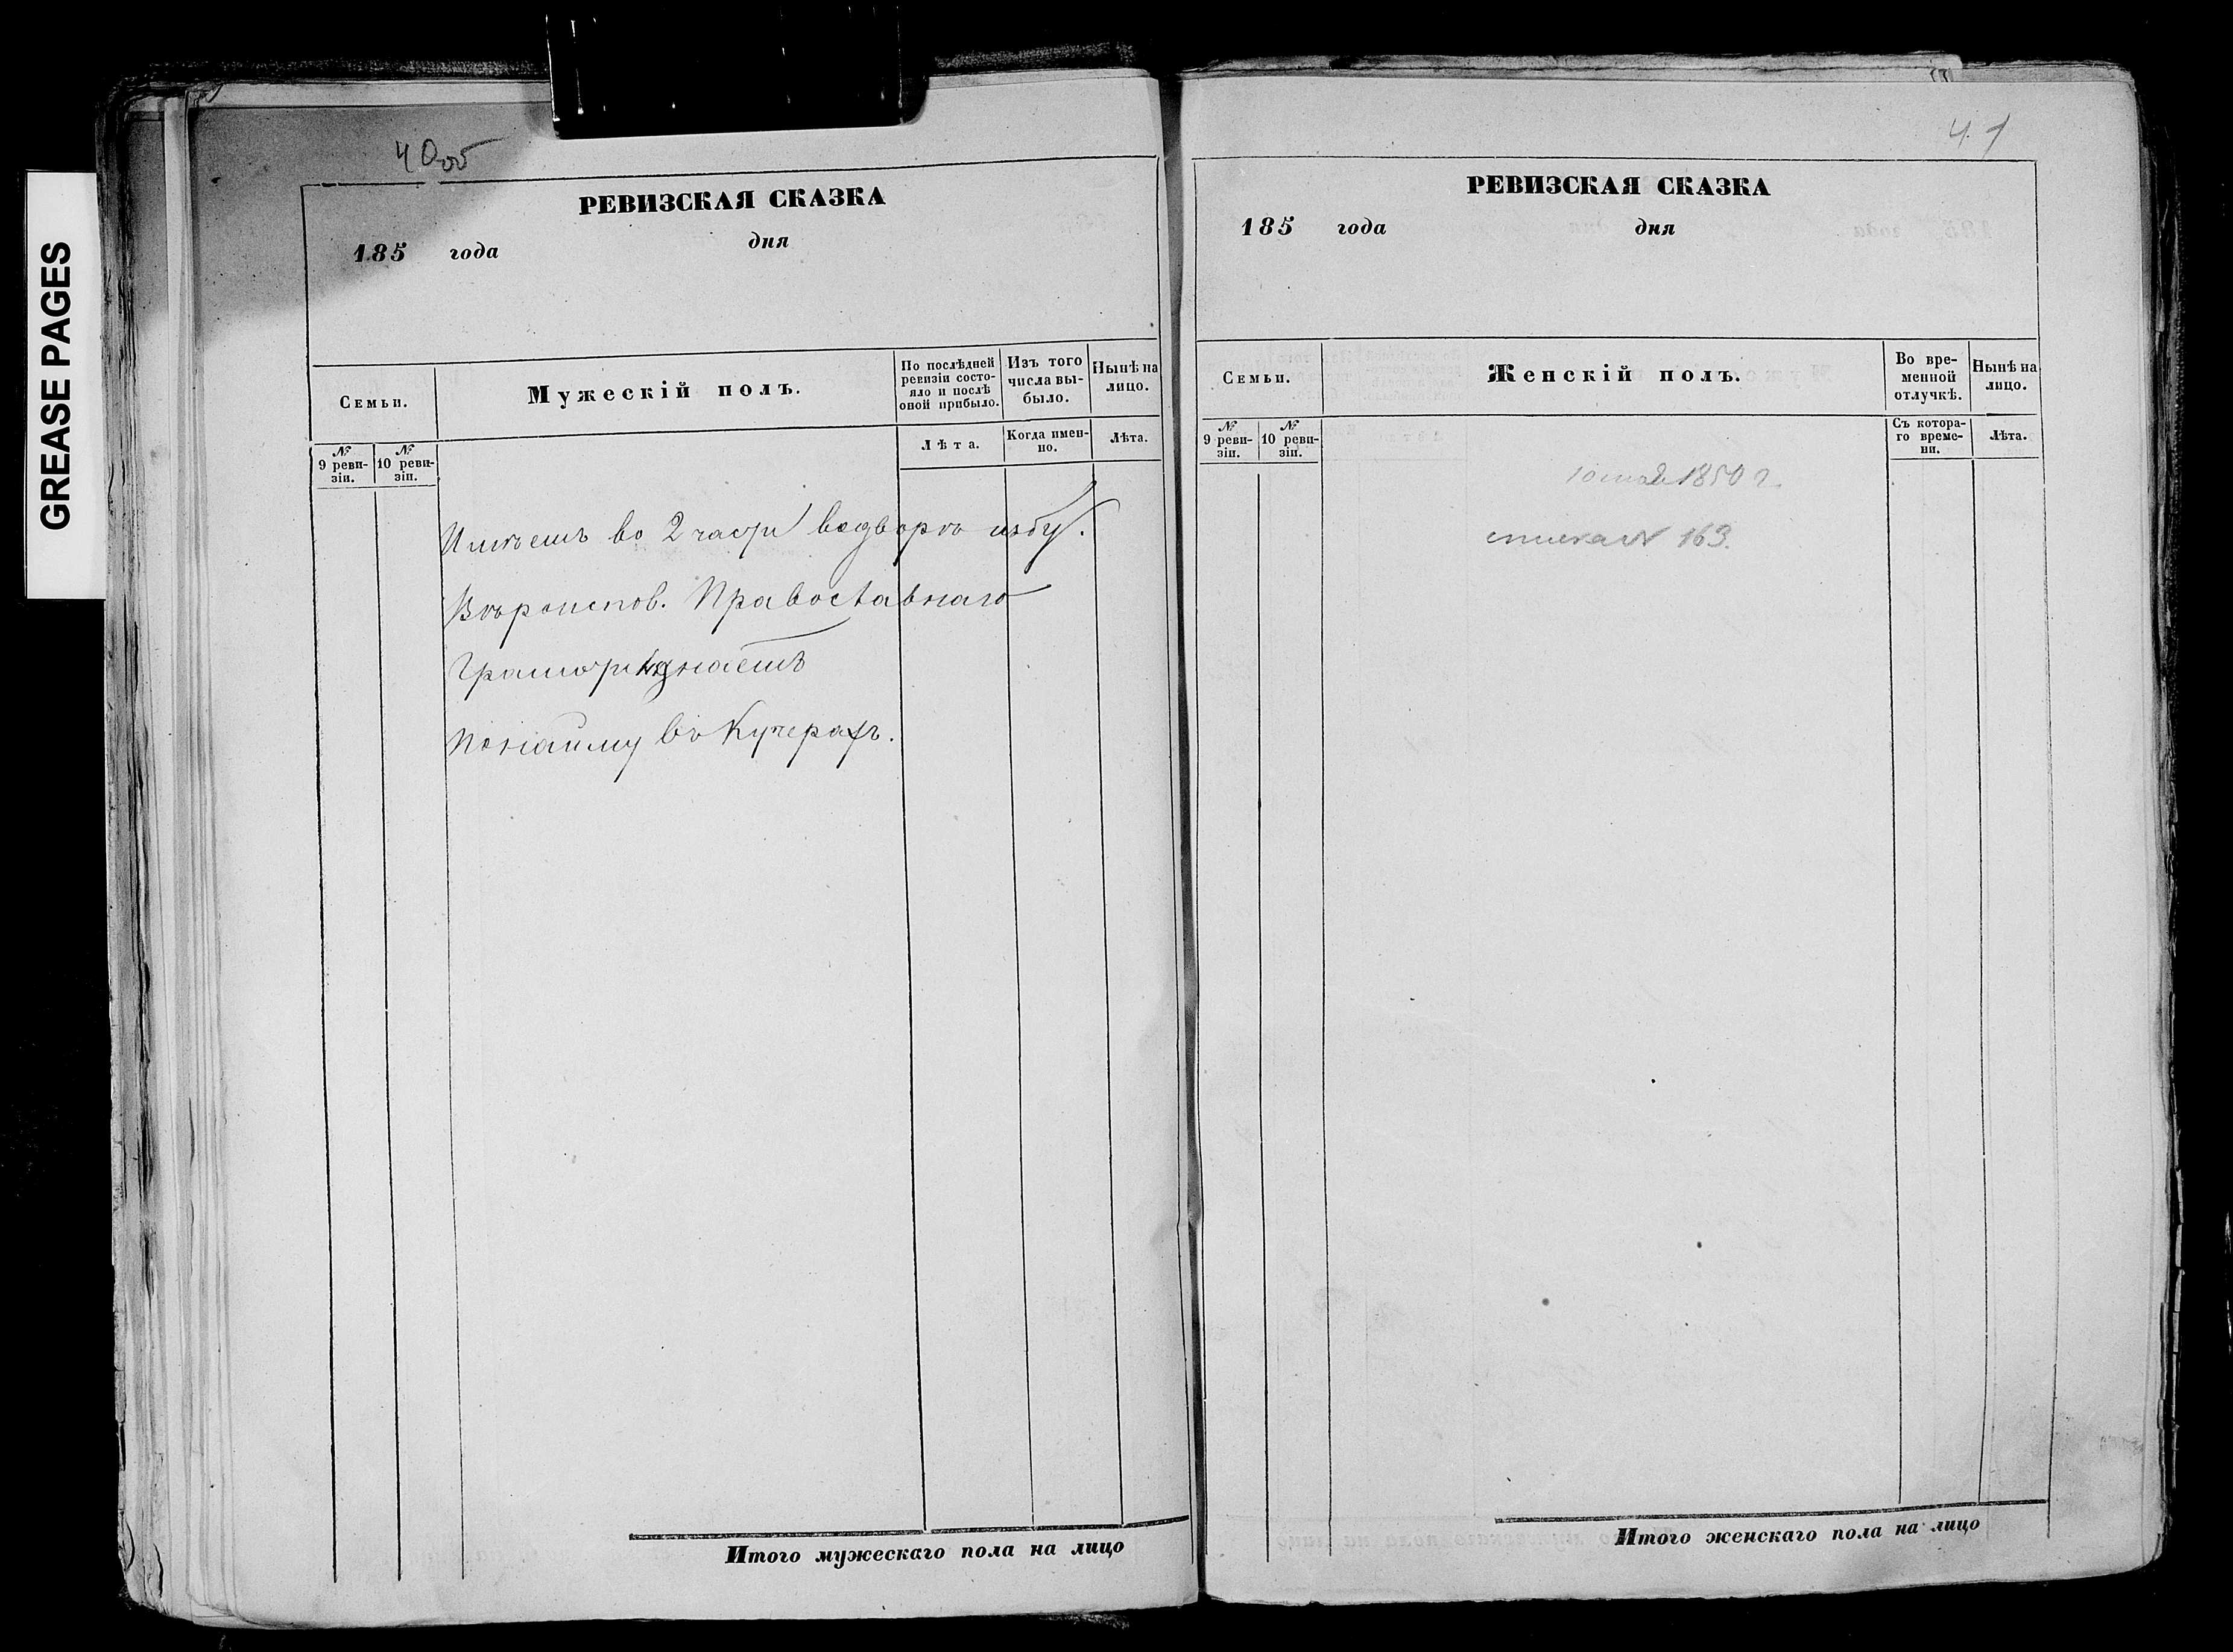 GREASE PAGES
40 об
РЕВИЗСКАЯ СКАЗКА
185 года дня
Семьи.
Мужескій полъ.
По послѣдней ревизіи состо-
яло и послѣ
оной прибыло.
Изъ того
числа вы-
было.
Нынѣ на
лицо.
№
9 реви-
зіи.
№
10 реви-
зіи.
Лѣта.
Когда имен-
но.
Лѣта.
Имѣетъ во 2 части водворѣ избу.
Вѣроиспов. Православнаго
Грамоти незнаетъ
Понайму въ Кучерахъ.
Итого мужескаго пола на лицо
41
РЕВИЗСКАЯ СКАЗКА
185 года дня
Семьи.
Женскій полъ.
Во вре-
менной
отлучкѣ.
Нынѣ на
лицо.
№
9 реви-
зіи.
№
10 реви-
зіи.
Съ котора-
го време-
ни.
Лѣта.
1850 г.
№ 163.
Итого женскаго пола на лицо